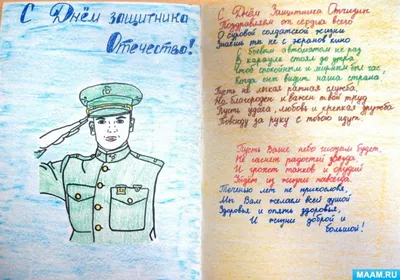 С Днём защитника
Отечества!
С Днём Защитника Отчизны
Поздравляем от сердца всего
О суровой солдатской жизни
Знаешь ты не с экранов кино
С боевым автоматом не раз
В карауле стоял до утра,
Чтоб спокойным и мирным был час,
Когда спит видит наша страна,
Пусть не легкая ратная служба,
Но благороден и важен твой труд
Пусть удача, любовь и крепкая дружба
Повсюду за руку с тобою идут.
Пусть Ваше небо чистым будет,
Не гаснет радостей звезда,
И грохот танков и орудий
Уйдет из жизни навсегда.
Точные лет не приколова,
Мы Вам желаем всей душой
Здоровья и опять здоровья,
И жизни доброй и
большой!
MAAM.RU